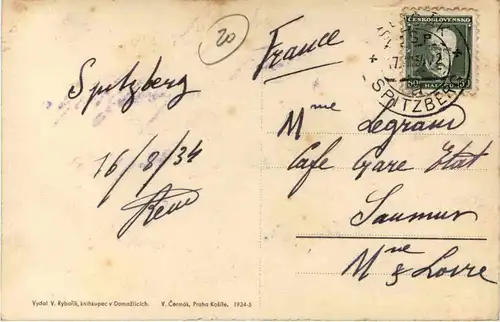 20
France
ČESKOSLOVENSKO
50 HALÉŘŮ 50
SPITZBERG
Spitzberg
16/8/34
René
Mme Legrand
Cafe Gare Etat
Saumur
Mne & Loire
Vydal V. Rybařík, knihkupec v Domažlicích. V. Čermák, Praha Košíře. 1934-5